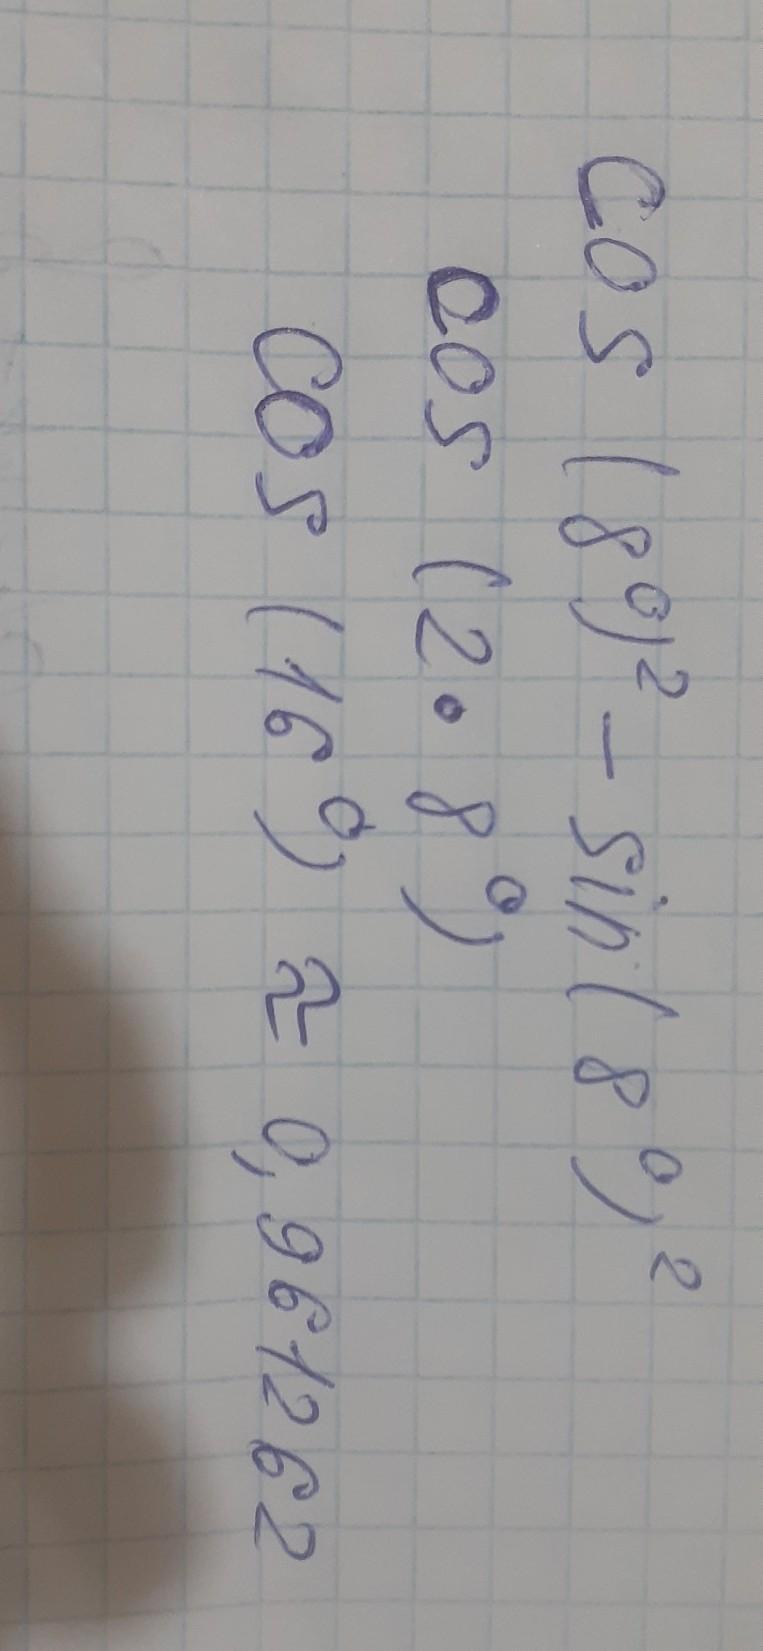 cos (8°)² - sin (8°)²
cos (2 • 8°)
cos (16°) ≈ 0,961262